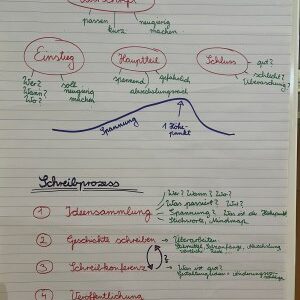 passen
kurz
neugierig
machen
Einstieg
Hauptteil
Schluss
gut?
schlecht?
Überraschung?
Wer?
Wann?
Wo?
soll
neugierig
machen
spannend
gefährlich
abwechslungsreich
Spannung
1 Höhe-
punkt
Schreibprozess
Wer? Wann? Wo?
Was passiert?
1 Ideensammlung
Spannung? Was ist der Höhepunkt
Stichworte, Mindmap
2 Geschichte schreiben
Überarbeiten
3 Schreibkonferenz
?
Was ist gut?
4 Veröffentlichung